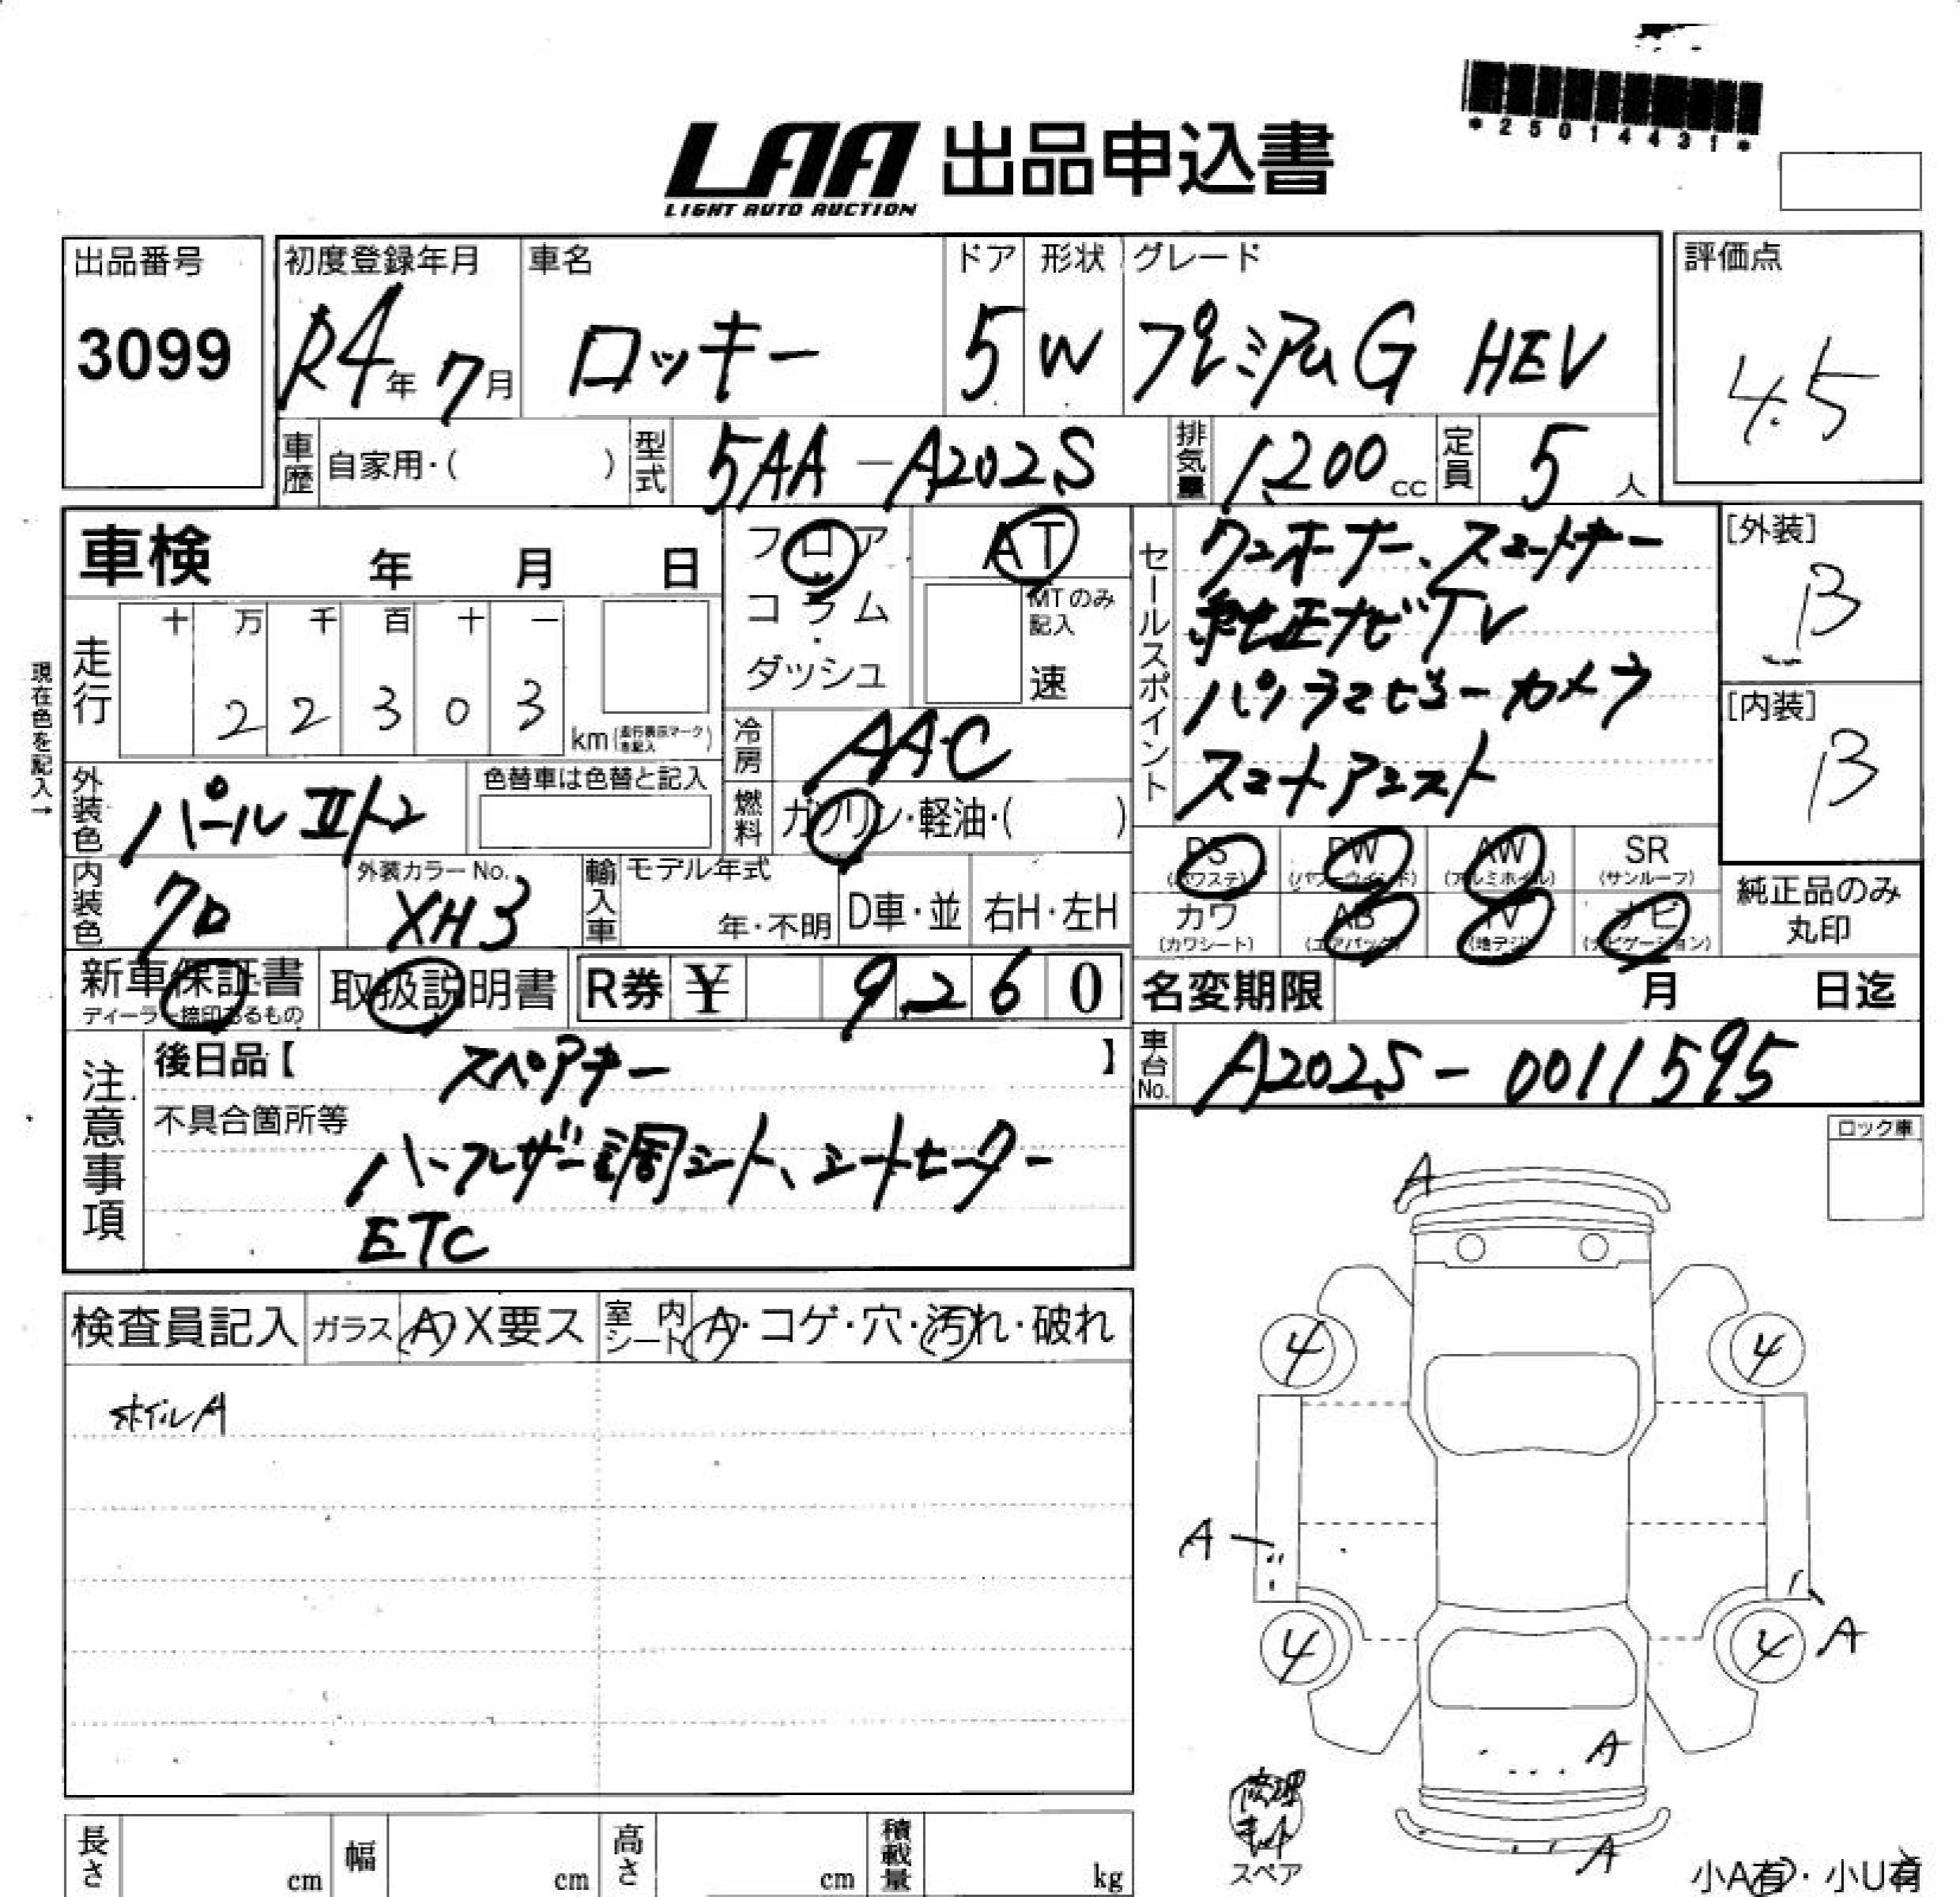 *25014431*
LAA 出品申込書
LIGHT AUTO AUCTION
出品番号 初度登録年月 車名 ドア 形状 グレード 評価点
3099 R4年 7月 ロッキー 5 W プレミアムG HEV 4.5
車歴 自家用・( ) 型式 5AA-A202S 排気量 1,200 cc 定員 5 人
車検 年 月 日
フロア・コラム・ダッシュ
AT
MTのみ記入
速
セールスポイント
ワンオーナー、スマートキー
純正ナビTV
パノラマビューカメラ
スマートアシスト
[外装] B
[内装] B
現在色を記入→
走行 十 万 千 百 十 一
2 2 3 0 3
km (走行表示マークを記入)
冷房 AAC
外装色 パールII
色替車は色替と記入
燃料 ガソリン・軽油・( )
内装色 クロ
外装カラーNo. XH3
輸入車 モデル年式 年・不明 D車・並 右H・左H
PS (パワステ) PW (パワーウインド) AW (アルミホイル) SR (サンルーフ)
カワ (カワシート) AB (エアバック) TV (地デジ) ナビ (ナビゲーション)
純正品のみ丸印
新車保証書 ディーラー捺印あるもの
取扱説明書
R券 ¥ 9,260
名変期限 月 日迄
車台No. A202S-0011595
注意事項
後日品【 スペアキー 】
不具合箇所等
ハーフレザー調シート、シートヒーター
ETC
ロック車
検査員記入 ガラス A・X要ス 室内シート A・コゲ・穴・汚れ・破れ
ホイルA
A
4 4
A
4 4 A
A
修理キット
スペア
A
小A有・小U有
長さ cm 幅 cm 高さ cm 積載量 kg